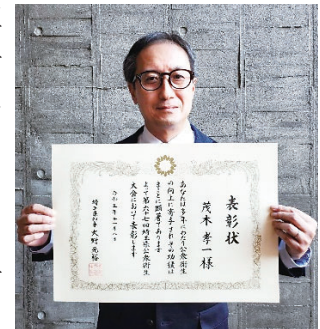 表彰状
茂木孝一様
あなたは多年にわたり公衆衛生
の向上に寄与されその功績は
まことに顕著であります
よって第六十七回埼玉県公衆衛生
大会において表彰します
令和五年十一月八日
埼玉県知事 大野元裕